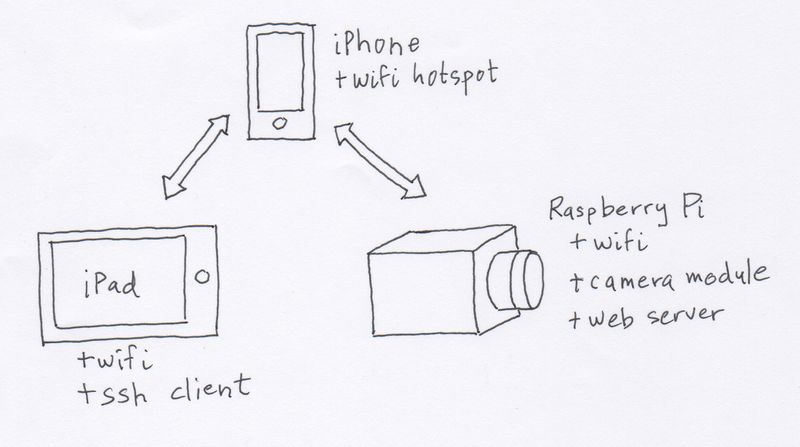 iPhone
+wifi hotspot
iPad
+wifi
+ssh client
Raspberry Pi
+wifi
+camera module
+web server